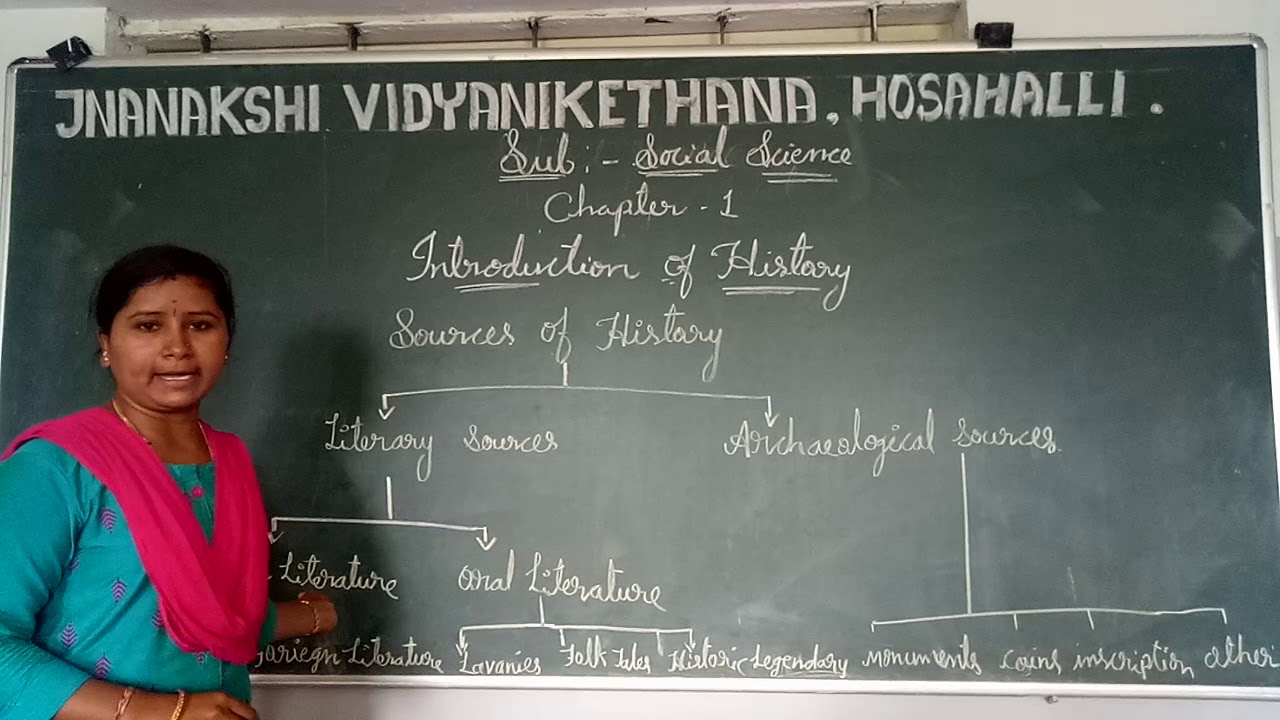 JNANAKSHI VIDYANIKETHANA, HOSAHALLI.
Sub:- Social Science
Chapter - 1
Introduction of History
Sources of History
Literary Sources Archaeological Sources
Literature Oral Literature
Literature Lavanies Folk Tales Historic Legendary monuments coins inscription other